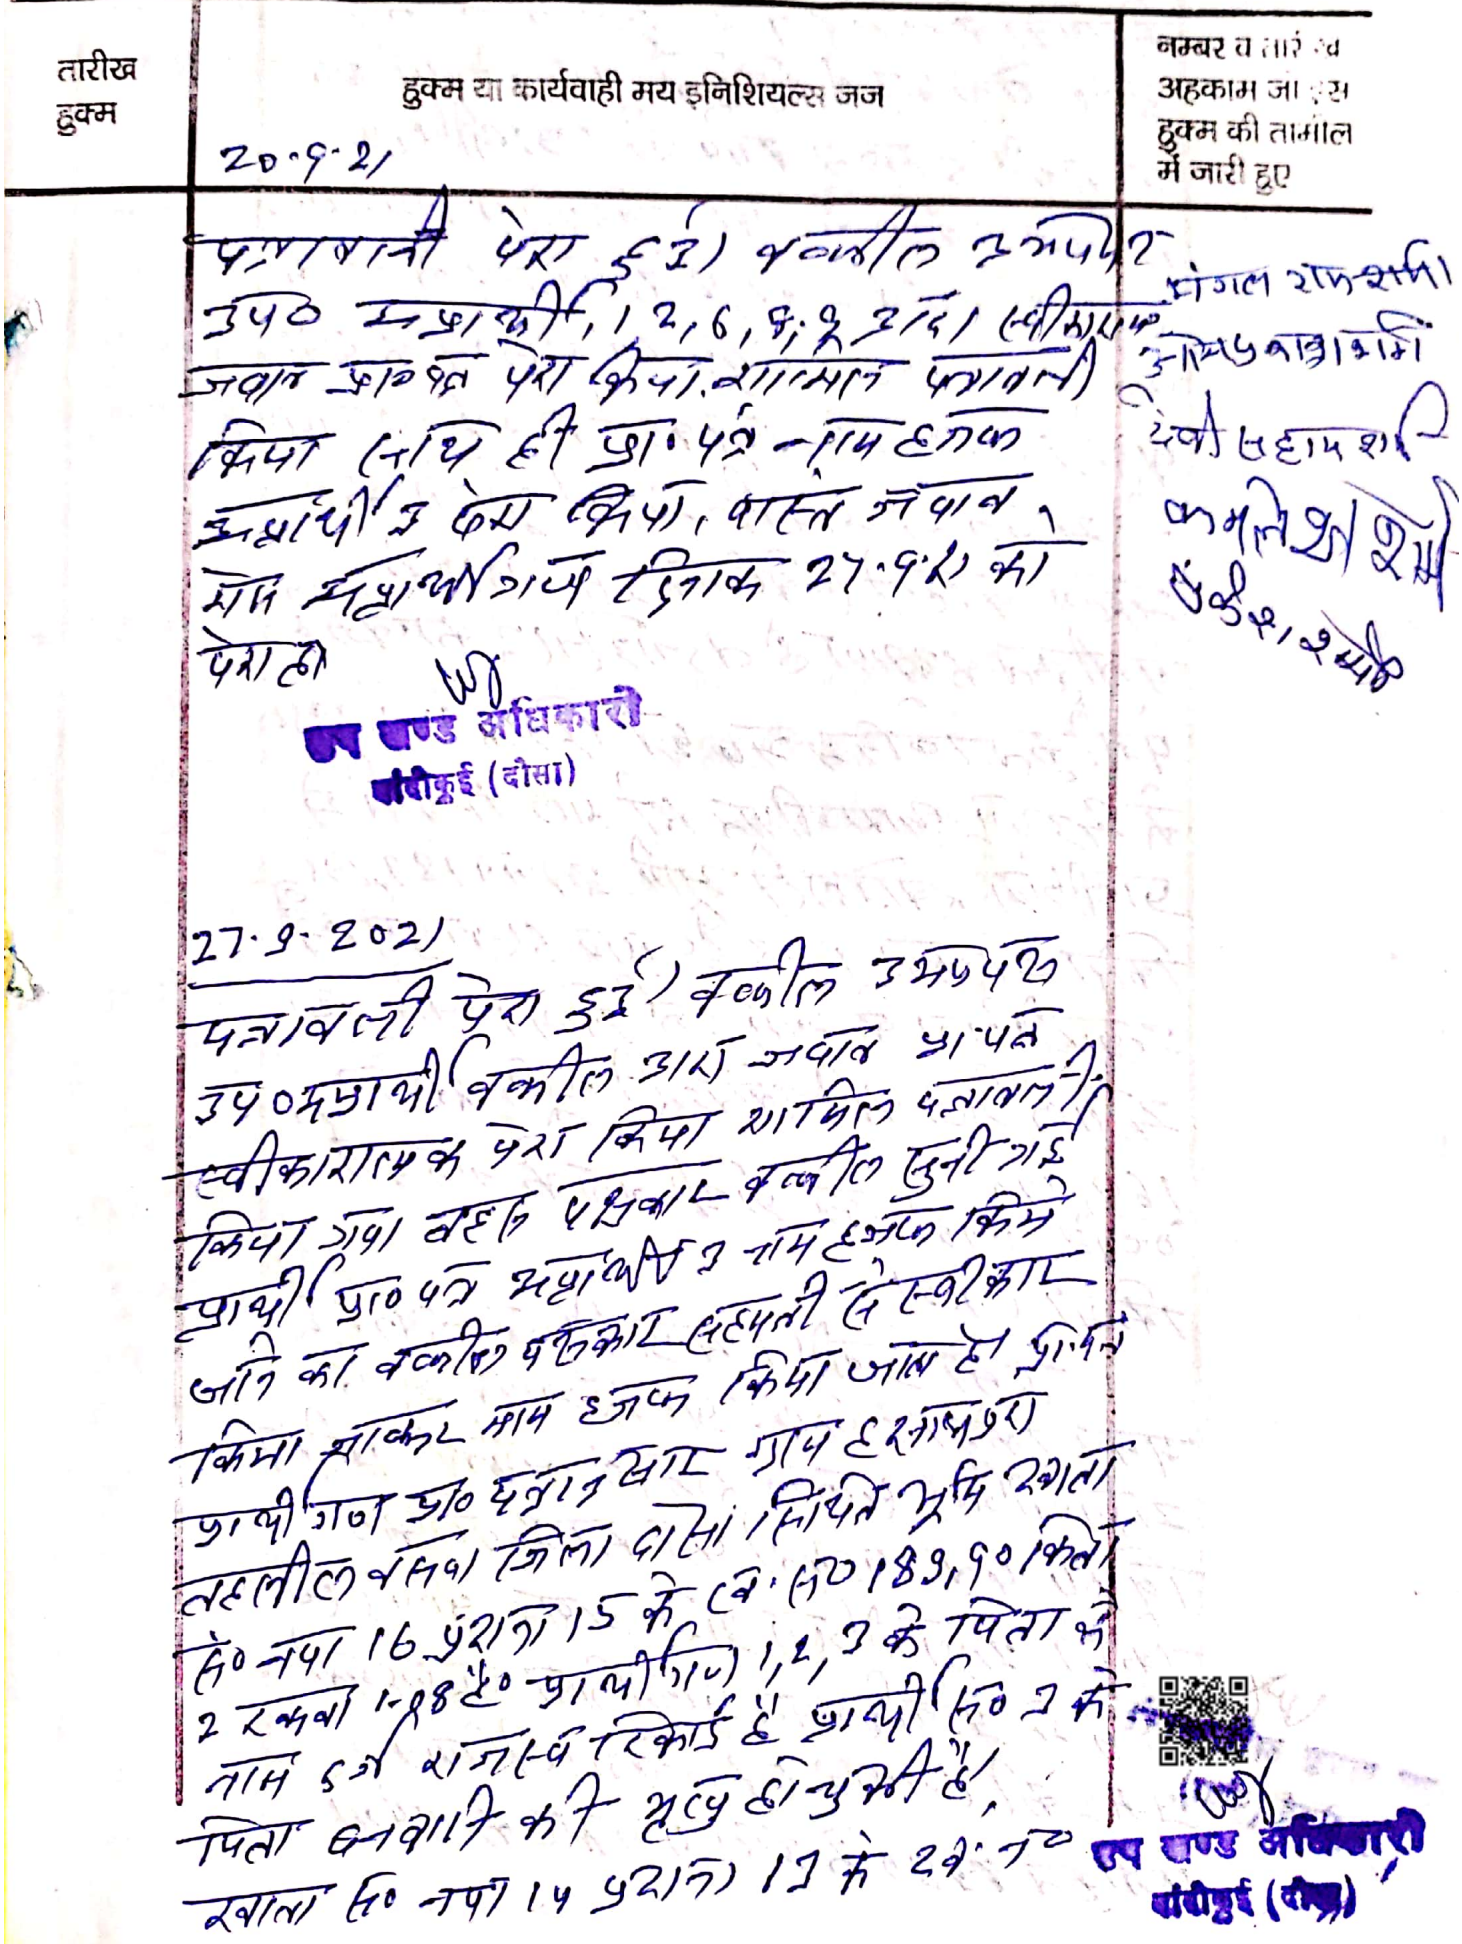 तारीख
हुक्म
हुक्म या कार्यवाही मय इनिशियल्स जज
नम्बर व तारीख
अहकाम जो इस
हुक्म की तामील
में जारी हुए
20.9.21
पत्रावली पेश हुई। वकील उभयपक्ष
उप० अप्रार्थी 1, 2, 6, 8, 9
जवाब प्रा० पत्र पेश किया. शामिल पत्रावली
किया साथ ही प्रा० पत्र नाम हजफ
अप्रार्थी 3 पेश किया, वास्ते जवाब
अप्रार्थीगण दिनांक 27.9.21 को
पेश हो
मंगल राम शर्मा
ओमप्रकाश शर्मा
देवी सहाय शर्मा
कमलेश शर्मा
मुकेश शर्मा
उप खण्ड अधिकारी
बांदीकुई (दौसा)
27.9.2021
पत्रावली पेश हुई। वकील उभयपक्ष
उप० अप्रार्थी वकील द्वारा जवाब प्रा. पत्र
स्वीकारात्मक पेश किया शामिल पत्रावली
किया गया बहस पक्षकार वकील सुनी गई
प्रार्थी प्रा० पत्र अप्रार्थी 3 नाम हजफ किये
जाने का वकील पक्षकार सहमती से स्वीकार
किया जाकर नाम हजफ किया जाता है प्रा. पत्र
प्रार्थीगण प्रा० पत्रानुसार ग्राम
तहसील बसवा जिला दौसा स्थित भूमि खाता
सं० नया 16 पुराना 15 के ख. सं० 189, 90 किता
2 रकबा 1.98 है० प्रार्थीगण 1, 2, 3 के पिता के
नाम दर्ज राजस्व रिकार्ड है प्रार्थी सं० 3 के
पिता की मृत्यु हो चुकी है,
खाता सं० नया 14 पुराना 13 के ख. नं०
उप खण्ड अधिकारी
बांदीकुई (दौसा)